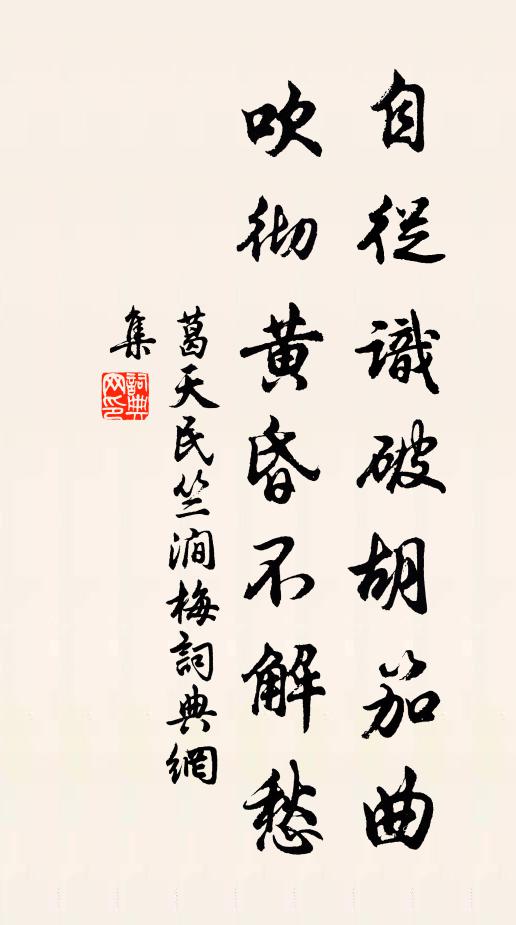 自從識破胡笳曲
吹彻黄昏不解愁
葛天民竺澗梅詞典網
集
詞典
网印